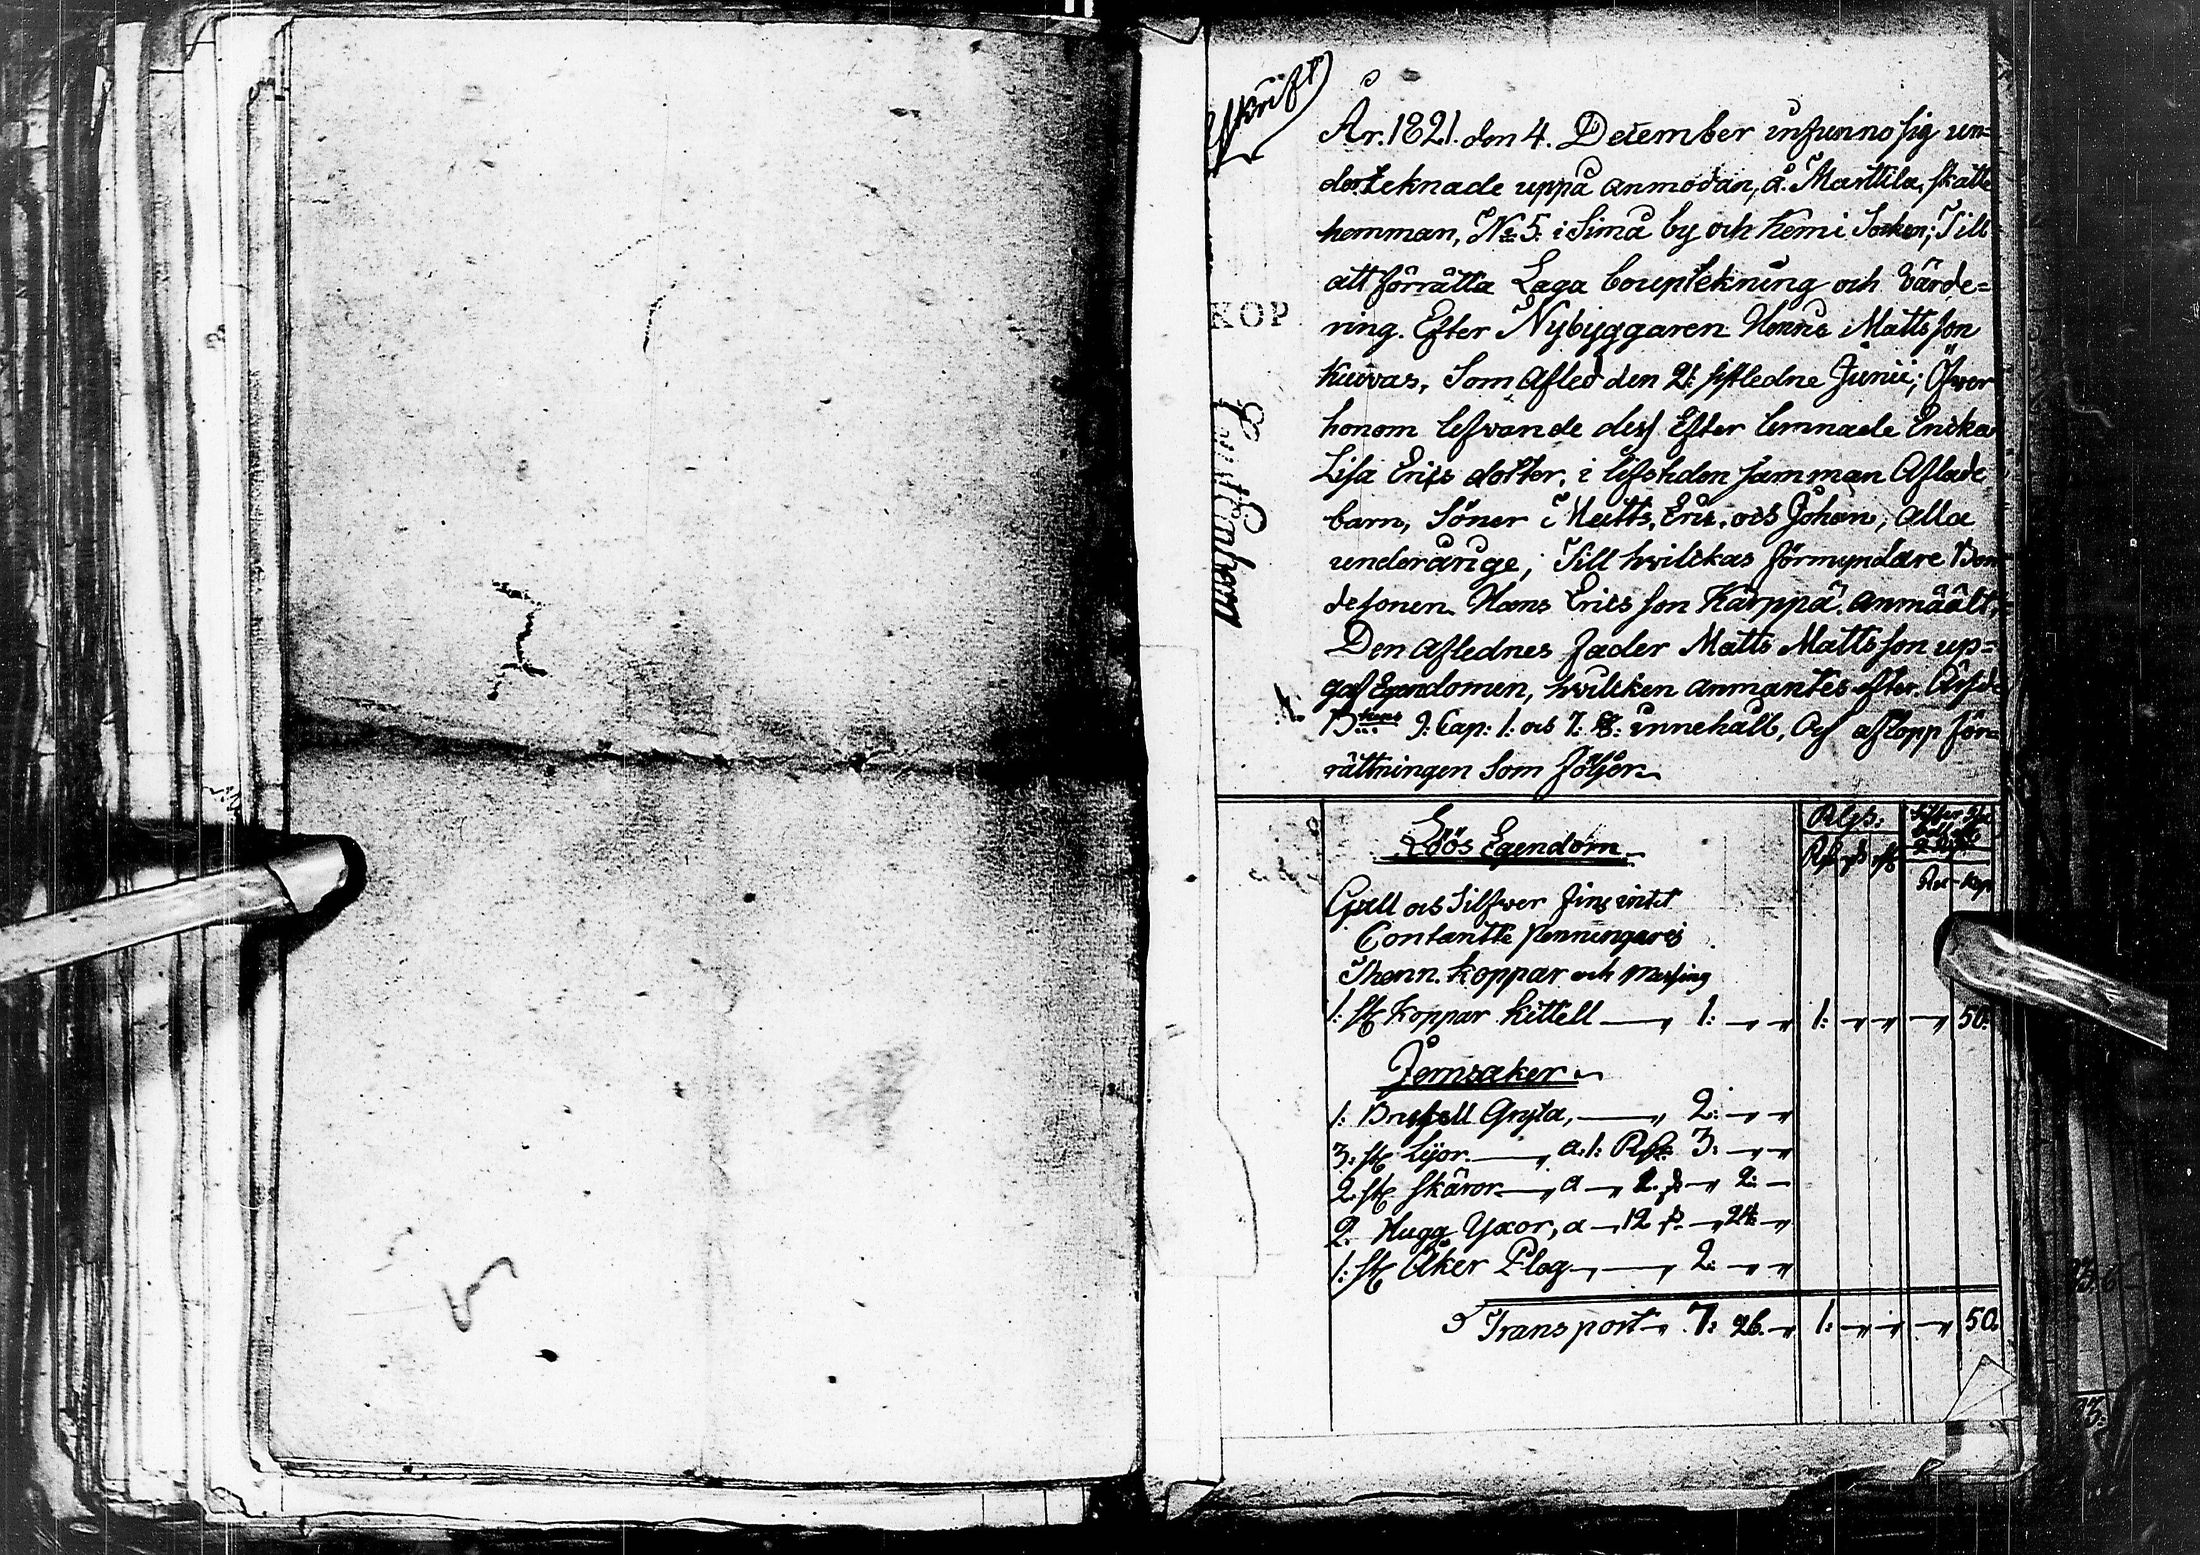 Afskrift
År. 1821. den 4. December infunno sig un=
derteknade uppå anmodan, å. Marttila, skatte
hemman, No 5. i Simå by och Kemi Socken; Till
att förrätta Laga bouptekning och Värde=
KOP
ring. Efter Nybyggaren Hans Matts son
Kuivas, Som Afled den 2: sistledne Junii; Öfwer
honom lefvande dess Efter lemnade Encka
Lisa Erics dotter, i lifstiden samman Aflade
barn, Söner Matts, Eric, och Johan, alla
underårige; Till hvilckas förmyndare Bon
desonen Hans Erics son Kärppä anmäält,
Den Aflednes fader Matts Matts son up=
gaf Egendomen, hvilcken anmantes efter Ärfda
B 9: Cap: 1: och 7: §: innehåll, Och aflopp för=
rättningen Som följer
Löös Egendom
Rgs:
Gull och Silfwer fins intet
Contantte penningar
Thenn. Koppar och Messing
1: st Koppar Kittell 1: 1: 50:
Jernsaker
1: Gryta, 2:
3: st Lijor a: 1: 3:
2: st Skäror a 2:
2: Hugg Yxor, a 12 24:
1: st Åker Plog 2:
Transport 7: 26. 1: 50.